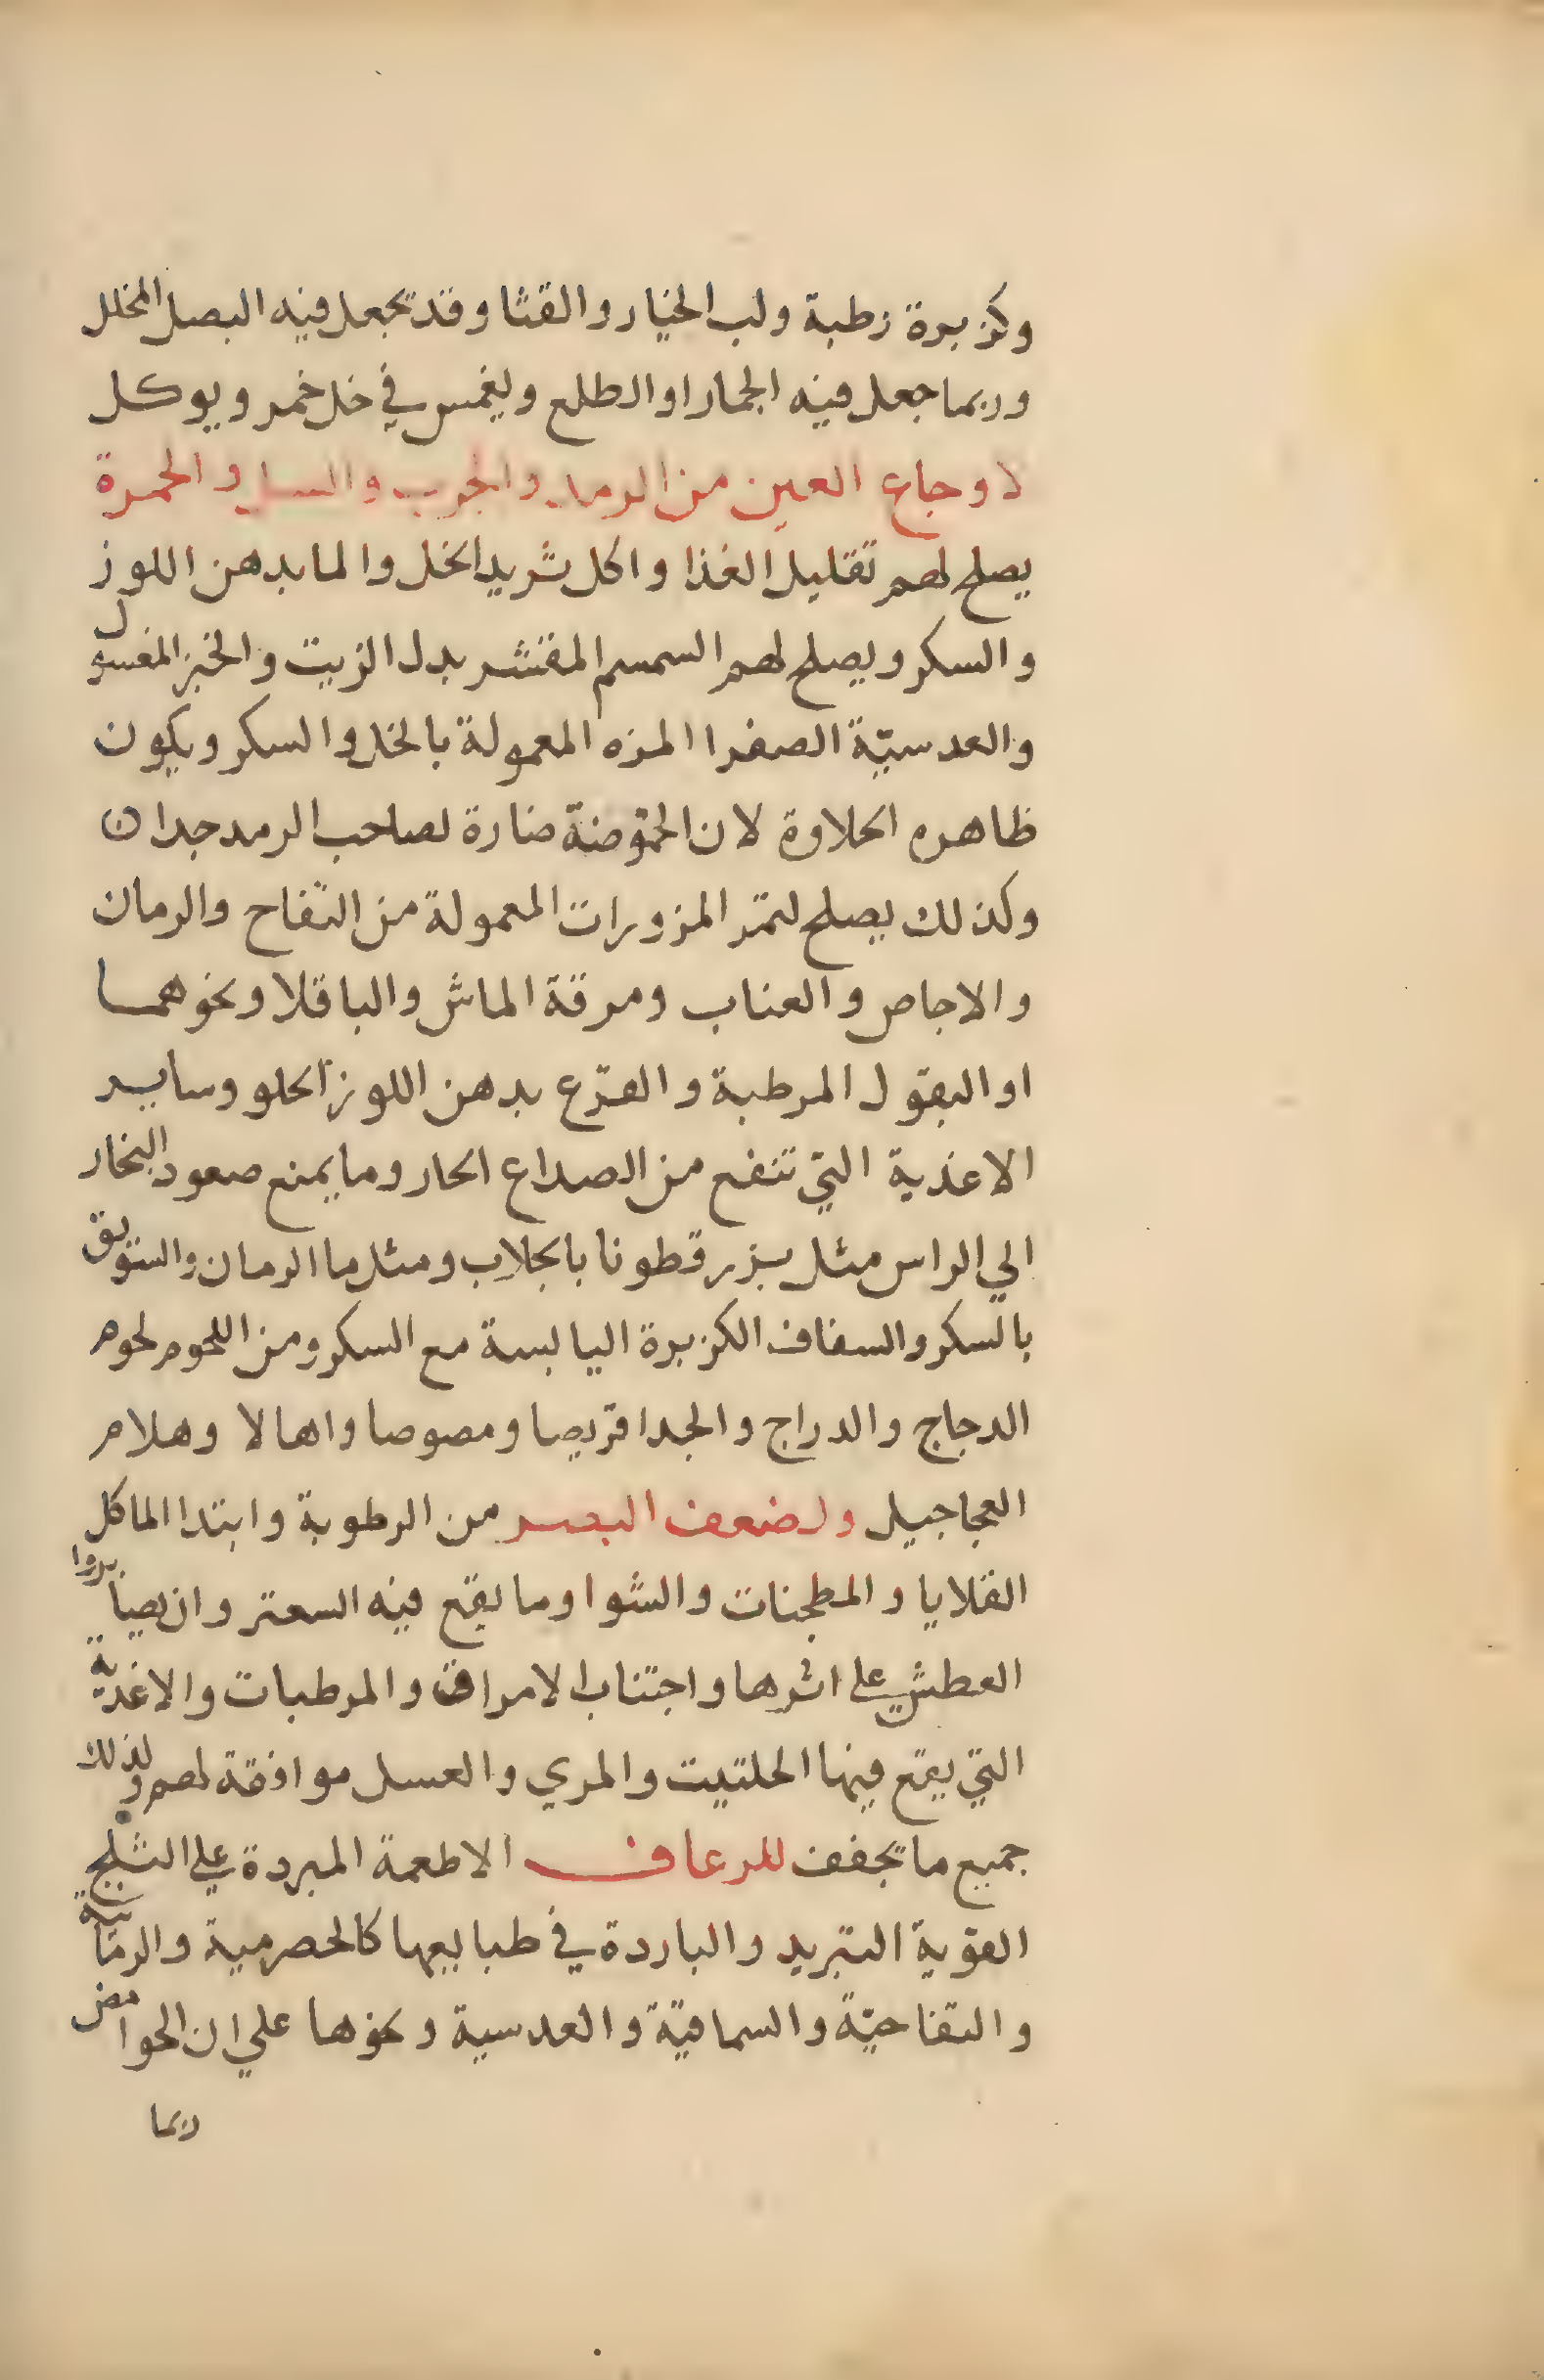 وكزبرة رطبة ولب الخيار والقثا وقد تجعل فيه البصل المخلل
وربما جعل فيه الجمار او الطلع ويغمس في خل خمر ويوكل
لاوجاع العين من الرمد والجرب والسبل والحمرة
يصلح لهم تقليل الغذا واكل ثريد الخل والما بدهن اللوز
والسكر ويصلح لهم السمسم المقشر بدل الزيت والخبز المغسول
والعدسيّة الصفرا المزه المعمولة بالخل والسكر ويكون
ظاهره الحلاوة لان الحموضة ضارة لصاحب الرمد جدا
وكذلك يصلح لهم المزورات المعمولة من التفاح والرمان
والاجاص والعناب ومرقة الماش والباقلا ونحوهما
او البقول المرطبة والقرع بدهن اللوز الحلو وساير
الاغذية التي تنفع من الصداع الحار وما يمنع صعود البخار
الي الراس مثل بزر قطونا بالجلاب ومثل ما الرمان والسويق
بالسكر والسفاف الكزبرة اليابسة مع السكر ومن اللحوم لحوم
الدجاج والدراج والجدا قريصا ومصوصا واهالا وهلام
العجاجيل ولضعف البصر من الرطوبة وابتدا الما كل
القلايا والمطجنات والشوا وما يقع فيه السعتر وان يصابروا
العطش علي اثرها واجتناب الامراق والمرطبات والاغذية
التي يقع فيها الحلتيت والمري والعسل موافقة لهم وكذلك
جميع ما يجفف للرعاف الاطعمة المبردة علي الثلج
القوية التبريد والباردة في طبايعها كالحصرمية والرمانية
والتفاحيّة والسماقيّة والعدسية ونحوها علي ان الحوامض
ربما